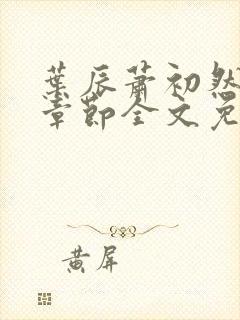 葉辰蕭初然
章節全文免
黃屏